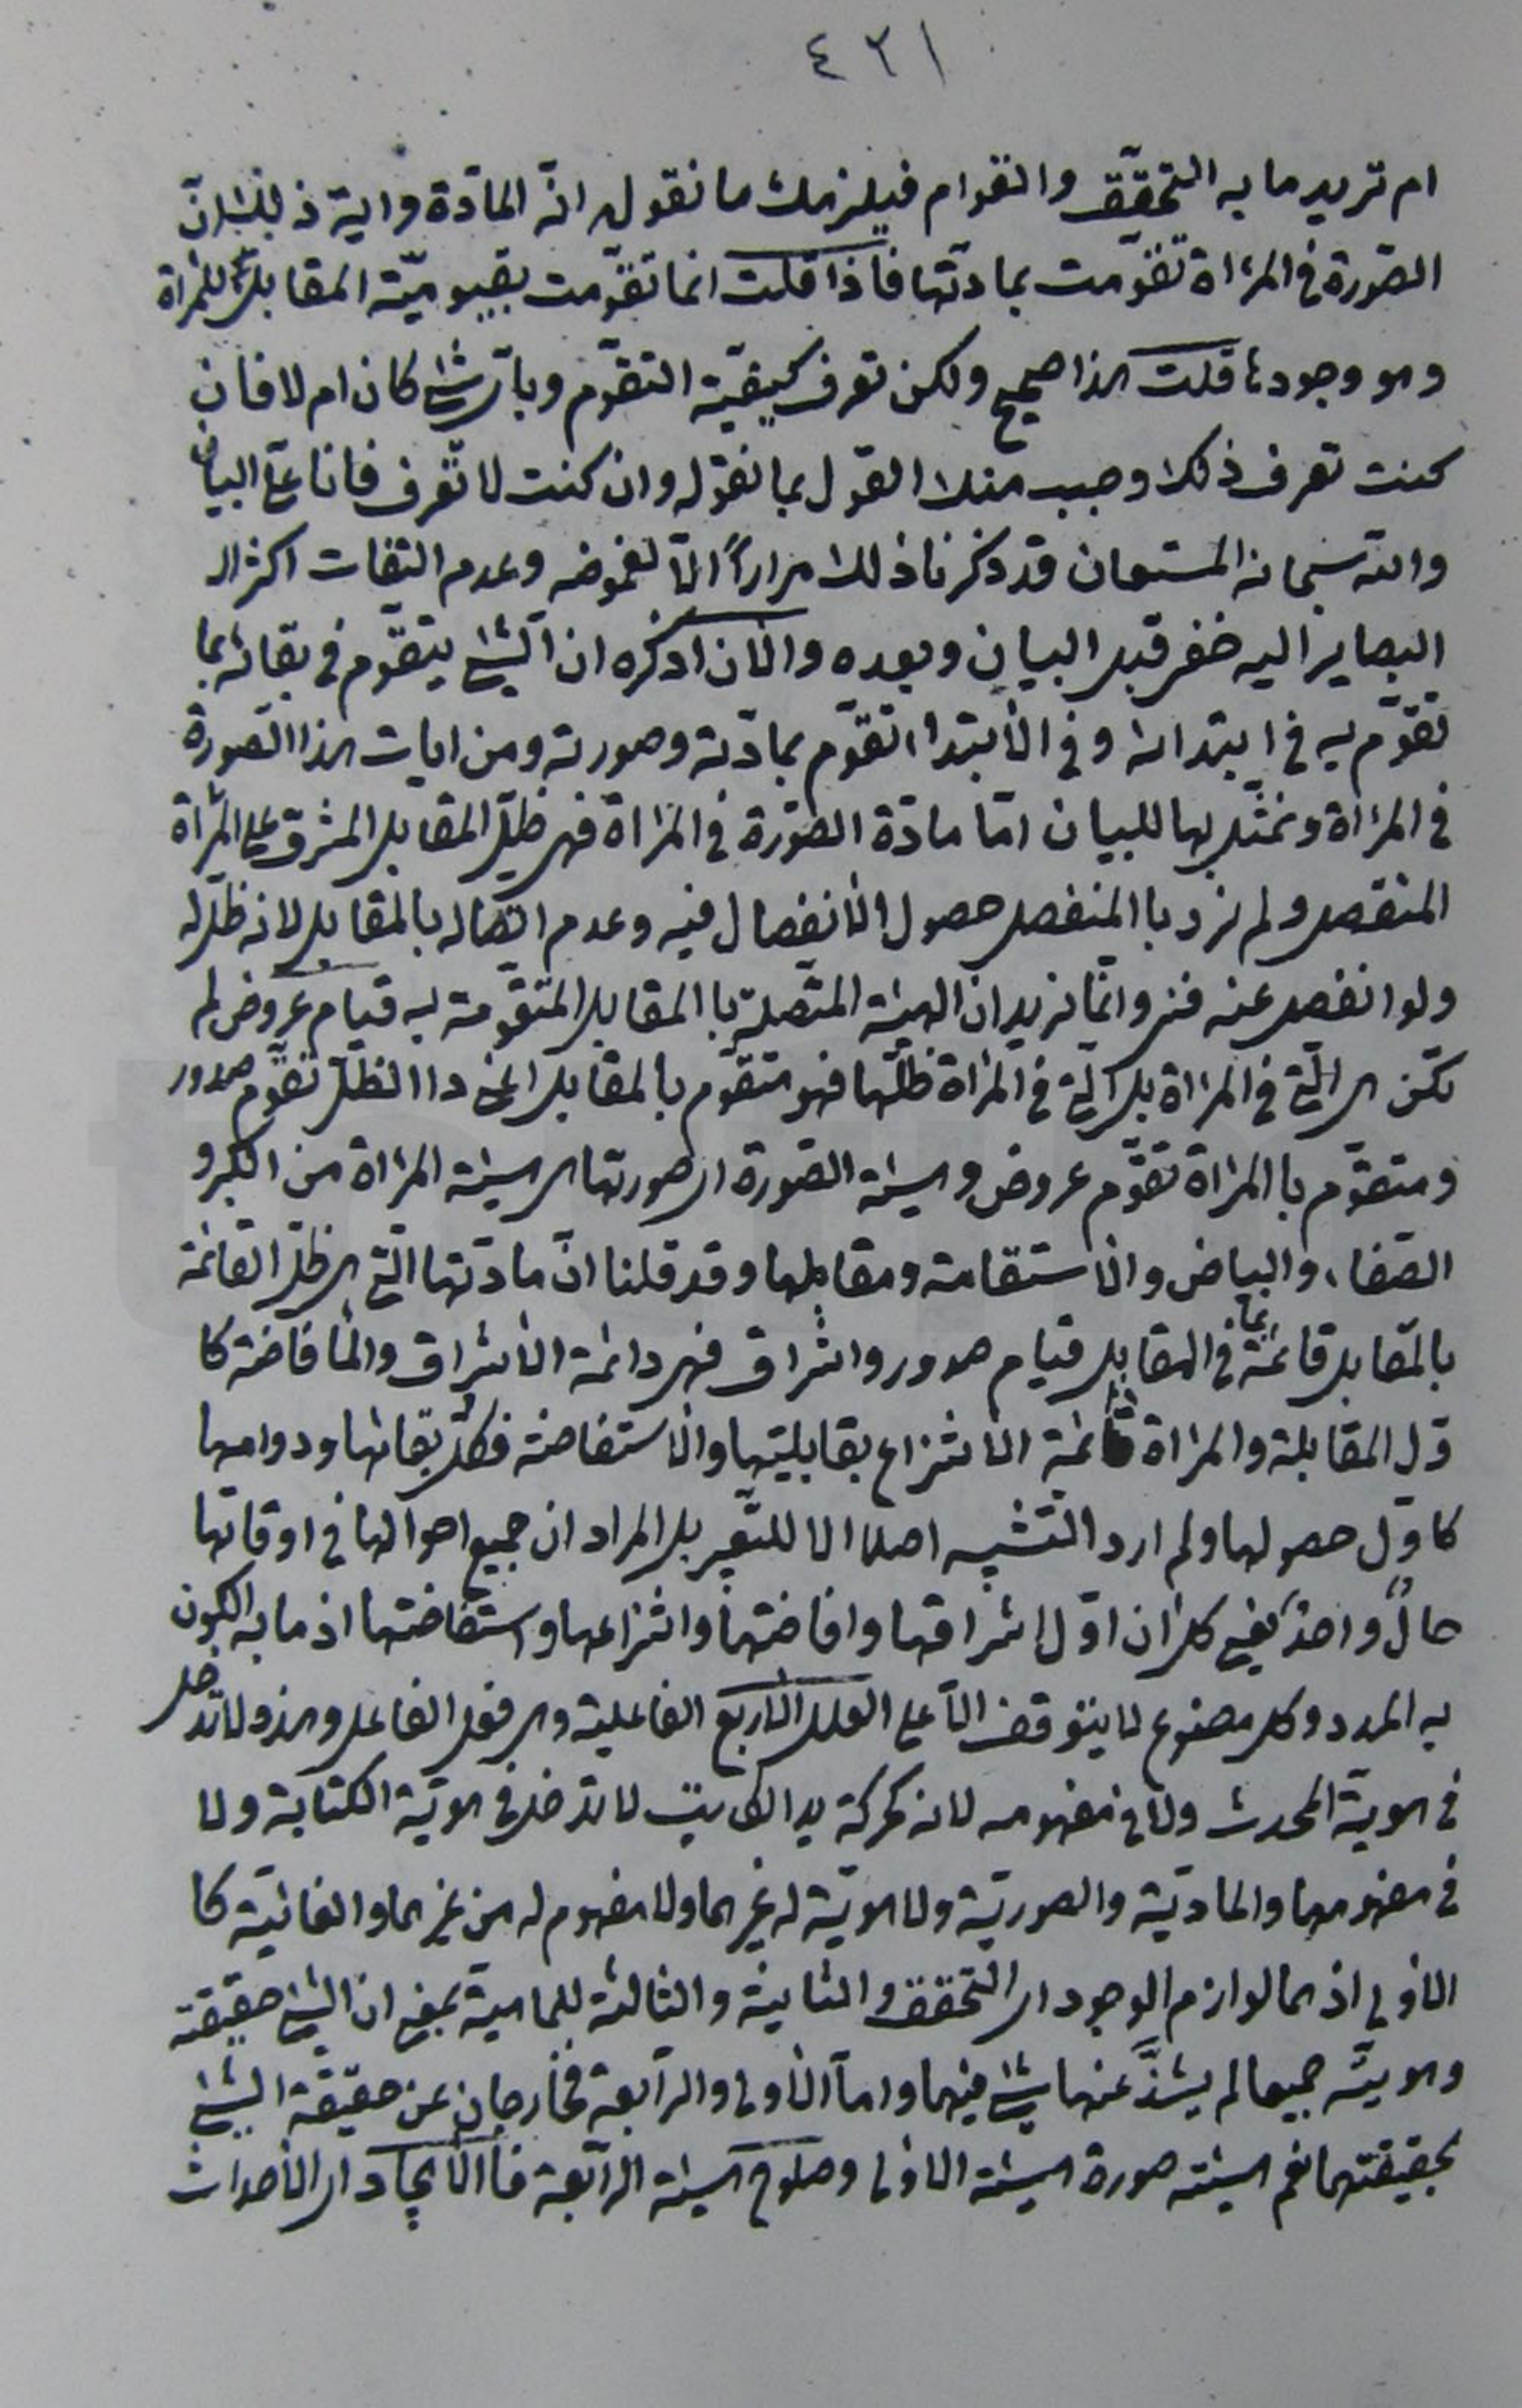 ٤٣١
ام تريد ما به التحقّق والتقوام فيلزمك ما نقول انّه المادّة واية ذلك انّ
الصّورة في المرءاة تقوّمت بمادّتها فاذا قلت انما تقوّمت بقيوميّة المقابل للمرءاة
وهو وجودها قلت هذا صحيح ولكن تعرف كيفيّة التقوّم وبايّ شئ كان ام لا فان
كنت تعرف ذلك وجب منك القول بما نقوله وان كنت لا تعرف فانا علىّ البيان
والله سبحانه المستعان قد ذكرنا ذلك مراراً الّا لغموضه وعدم التفات اكثر ال
البصاير اليه خفى قبل البيان وبعده والان اذكره ان الشئ يتقوّم في بقائه بما
تقوّم به في ابتدائه وفي الابتداء تقوّم بمادّته وصورته ومن ايات هذا الصورة
في المرءاة ونمثّل بها للبيان امّا مادّة الصّورة في المرءاة فهى ظلّ المقابل المشرق على المرءاة
المنفصل ولم نرد با المنفصل حصول الانفصال فيه وعدم اتصاله بالمقابل لانه ظلّ له
ولو انفصل عنه فنى وانّما نريد ان الهيئة المتّصلة با المقابل المتقوّمة به قيام عروض لم
تكن هى الّتى في المرءاة بل الّتى في المرءاة ظلّها فهو متقوّم بالمقابل اعنى ذا الظلّ تقوّم صدور
ومتقوّم با المرءاة تقوّم عروض وهيئة الصّورة اى صورتها هى هيئة المرءاة من الكبر و
الصّفاء والبياض والاستقامة ومقابلها وقد قلنا انّ مادّتها الّتى هى ظلّ القائمة
بالمقابل قائمة في المقابل قيام صدور واشراق فهى دائمة الاشراق والافاضة كا
وّل المقابلة والمرءاة دائمة الانتزاع بقابليتها والاستفاضة فكلّ بقائها ودوامها
كاوّل حصولها ولم ارد التشبيه اصلا الا للتّعبير بل المراد ان جميع احوالها في اوقاتها
حالٌ واحدٌ يعنى كل ان اوّل اشراقها وافاضتها وانتزاعها واستفاضتها اذ ما به الكون
به المدد وكل مصنوع لا يتوقف الّا على العلل الاربع الفاعلية وهى فعل الفاعل وهذه لا تدخل
في هويّة المحدث ولا في مفهومه لانه كحركة يد الكاتب لا تدخل في هويّة الكتابة ولا
في مفهومها والمادّية والصوريّة ولا هويّة له غيرهما ولا مفهوم له من غيرهما والغائيّة كا
الاولى اذ هما لوازم الوجود اى التحقق والثانية والثالثة للماهية بمعنى ان الشئ حقيقته
وهويّته جميعا لم يشذّ عنها شئ فيهما واما الاولى والرّابعة فخارجان عن حقيقة الشئ
بحقيقتهما نعم هيئته صورة هيئة الاولى وصلوح هيئة الرّابعة فا الايجاد اى الاحداث